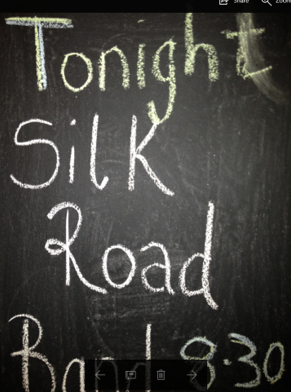 Share Zoom
Tonight
Silk
Road
Band 8:30